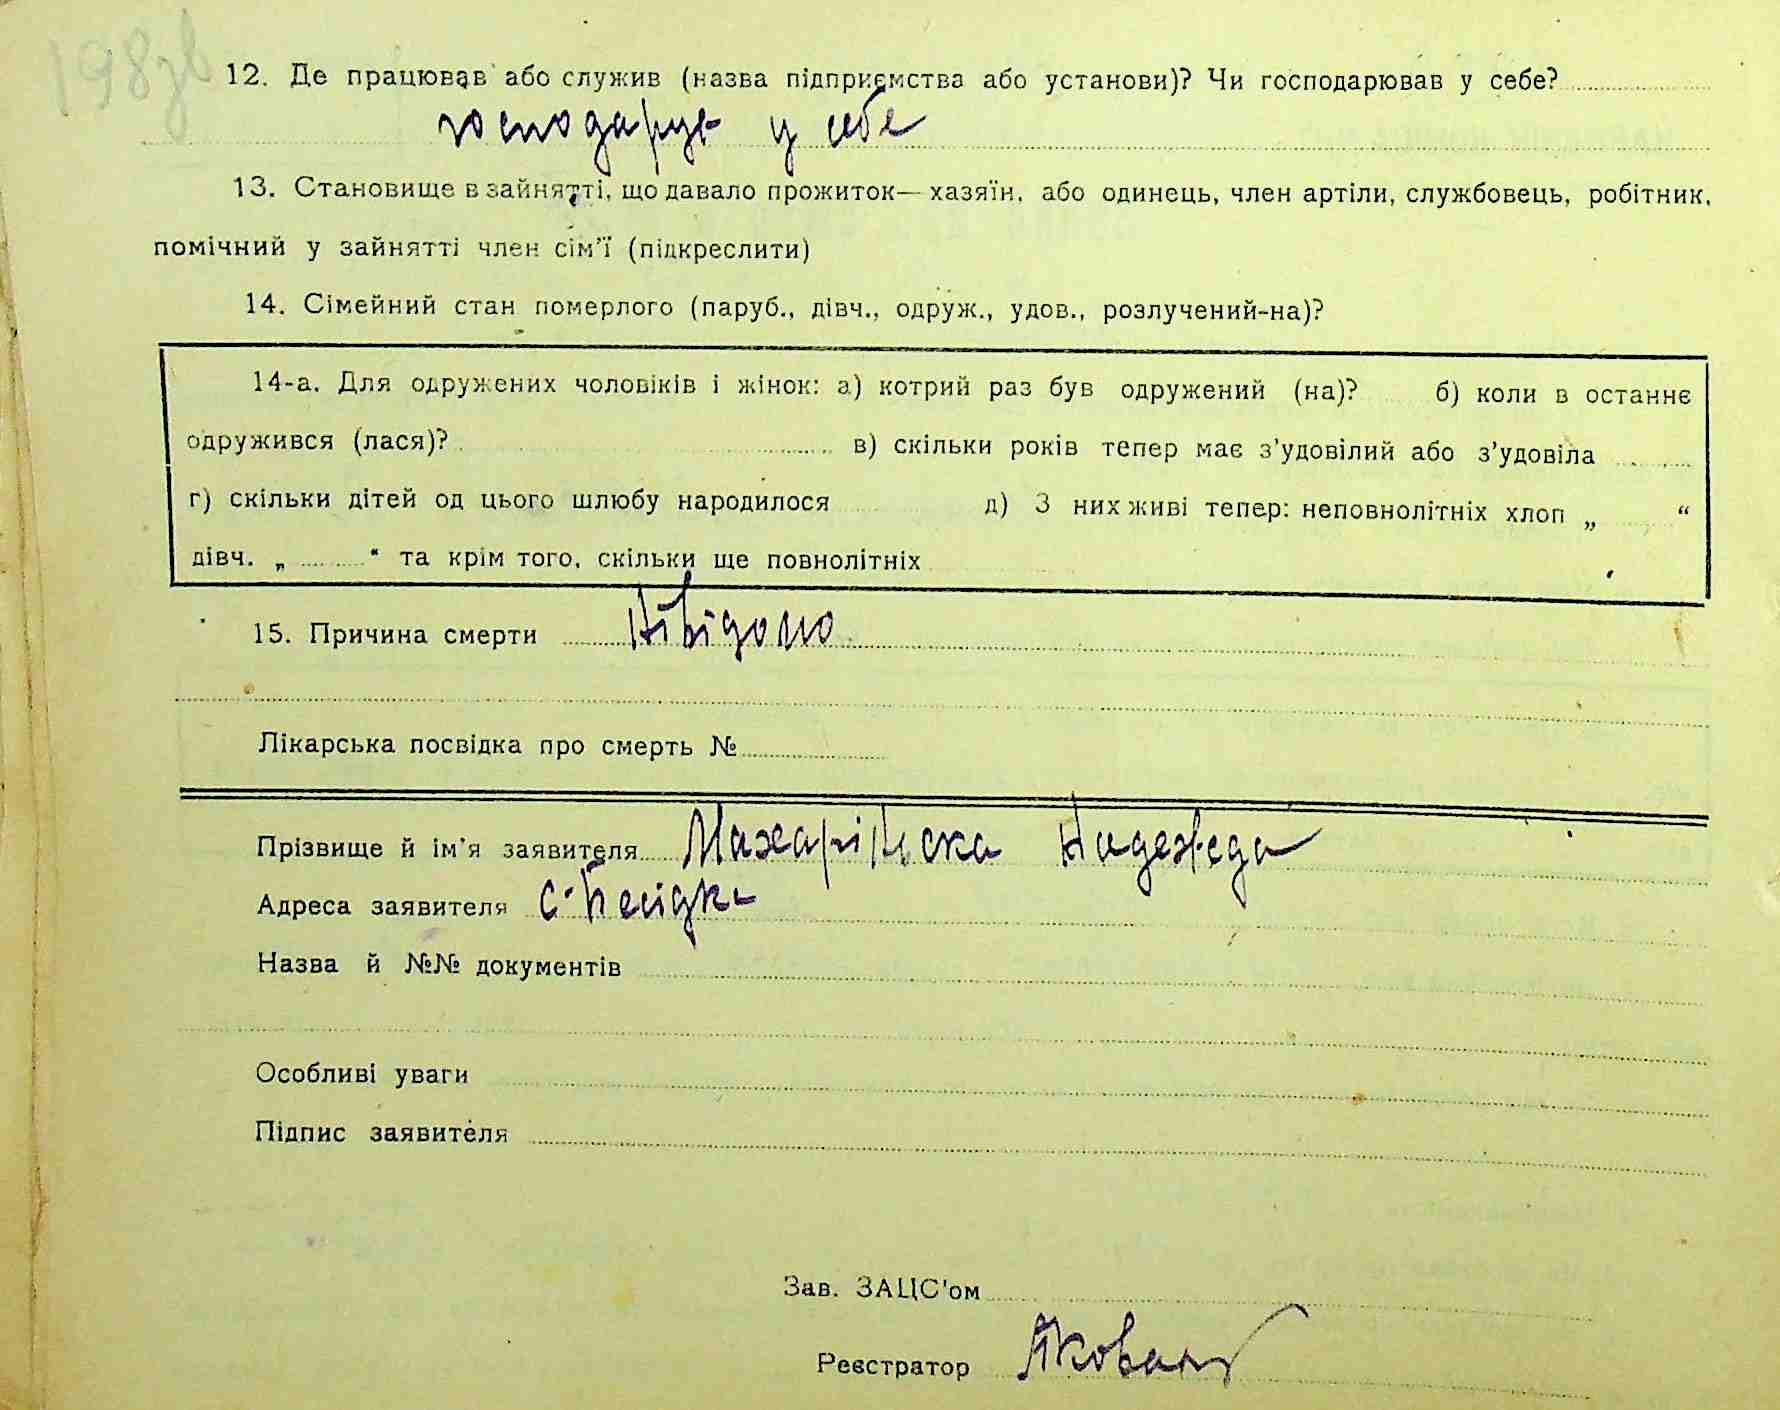 198зв
12. Де працював або служив (назва підприємства або установи)? Чи господарював у себе?
господарує у себе
13. Становище в зайнятті, що давало прожиток— хазяїн, або одинець, член артіли, службовець, робітник,
помічний у зайнятті член сім'ї (підкреслити)
14. Сімейний стан померлого (паруб., дівч., одруж., удов., розлучений-на)?
14-а. Для одружених чоловіків і жінок: а) котрий раз був одружений (на)? б) коли в останнє
одружився (лася)? в) скільки років тепер має з'удовілий або з'удовіла
г) скільки дітей од цього шлюбу народилося д) З них живі тепер: неповнолітніх хлоп „ “
дівч. „ “ та крім того, скільки ще повнолітніх
15. Причина смерти
Лікарська посвідка про смерть №
Прізвище й ім'я заявителя Надежда
Адреса заявителя с. Бесідка
Назва й №№ документів
Особливі уваги
Підпис заявителя
Зав. ЗАЦС'ом
Реєстратор